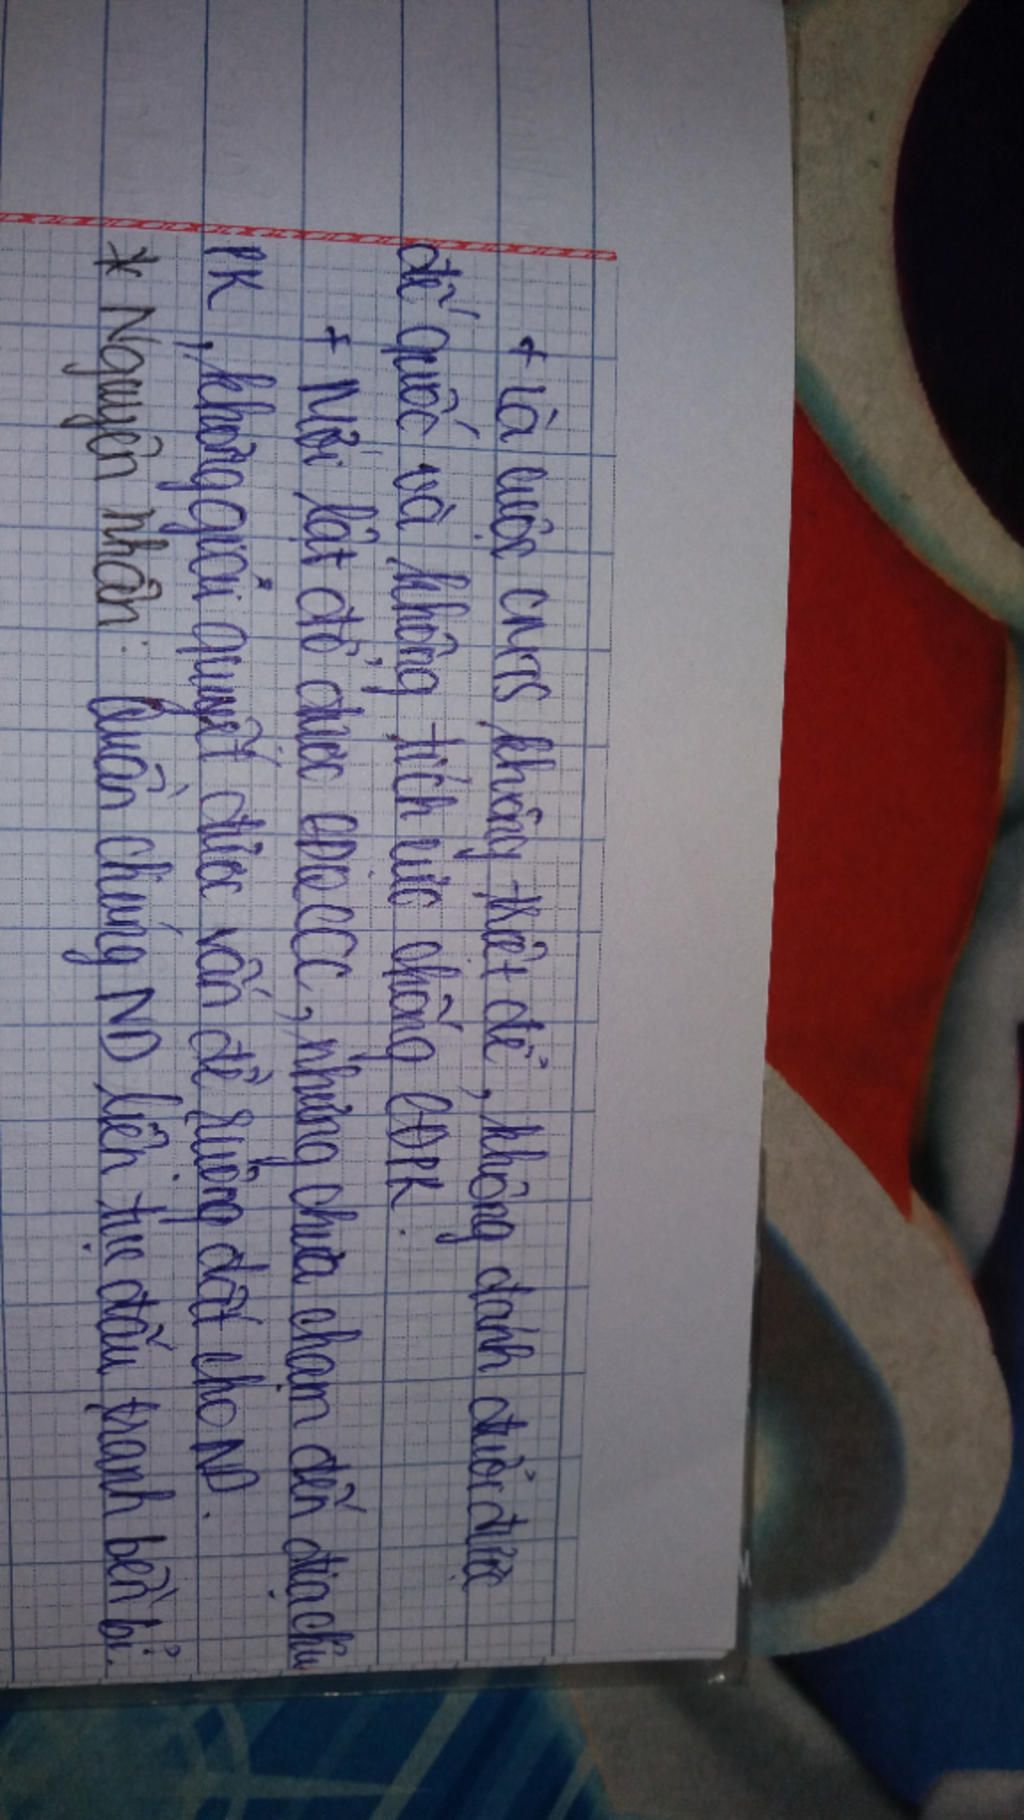 + Là cuộc CMTS không triệt để, không đánh đuổi được
đế quốc và không tích cực chống CĐPK.
+ Mới lật đổ được CĐQCC, nhưng chưa chạm đến địa chủ
PK, không giải quyết được vấn đề ruộng đất cho ND.
* Nguyên nhân: Quần chúng ND liên tục đấu tranh bền bỉ.